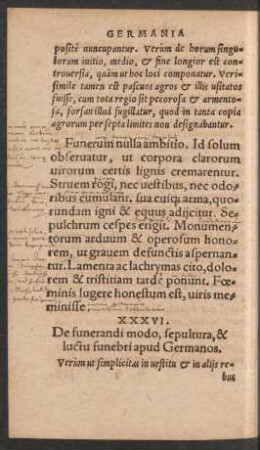 GERMANIA
positè nuncupantur. Verùm de horum singu⸗
lorum initio, medio, & fine longior est con⸗
trouersia, quàm ut hoc loci componatur. Veri⸗
simile tamen est pascuos agros & illis usitatos
fuisse, cum tota regio sit pecorosa & armento⸗
sa, forsan illud sugillatur, quod in tanta copia
agrorum per septa limites non designabantur.
Funerum nulla ambitio. Id solum
obseruatur, ut corpora clarorum
uirorum certis lignis cremarentur.
Struem rogi, nec uestibus, nec odo⸗
ribus cumulant. sua cuiq; arma, quo⸗
rundam igni & equus adijcitur. Se⸗
pulchrum cespes erigit. Monumen⸗
torum arduum & operosum hono⸗
rem, ut grauem defunctis aspernan⸗
tur. Lamenta ac lachrymas cito, dolo⸗
rem & tristitiam tardè ponunt. Fœ⸗
minis lugere honestum est, uiris me⸗
minisse.
XXXVI.
De funerandi modo, sepultura, &
luctu funebri apud Germanos.
Verùm ut simplicitas in uestitu & in alijs re⸗
bus